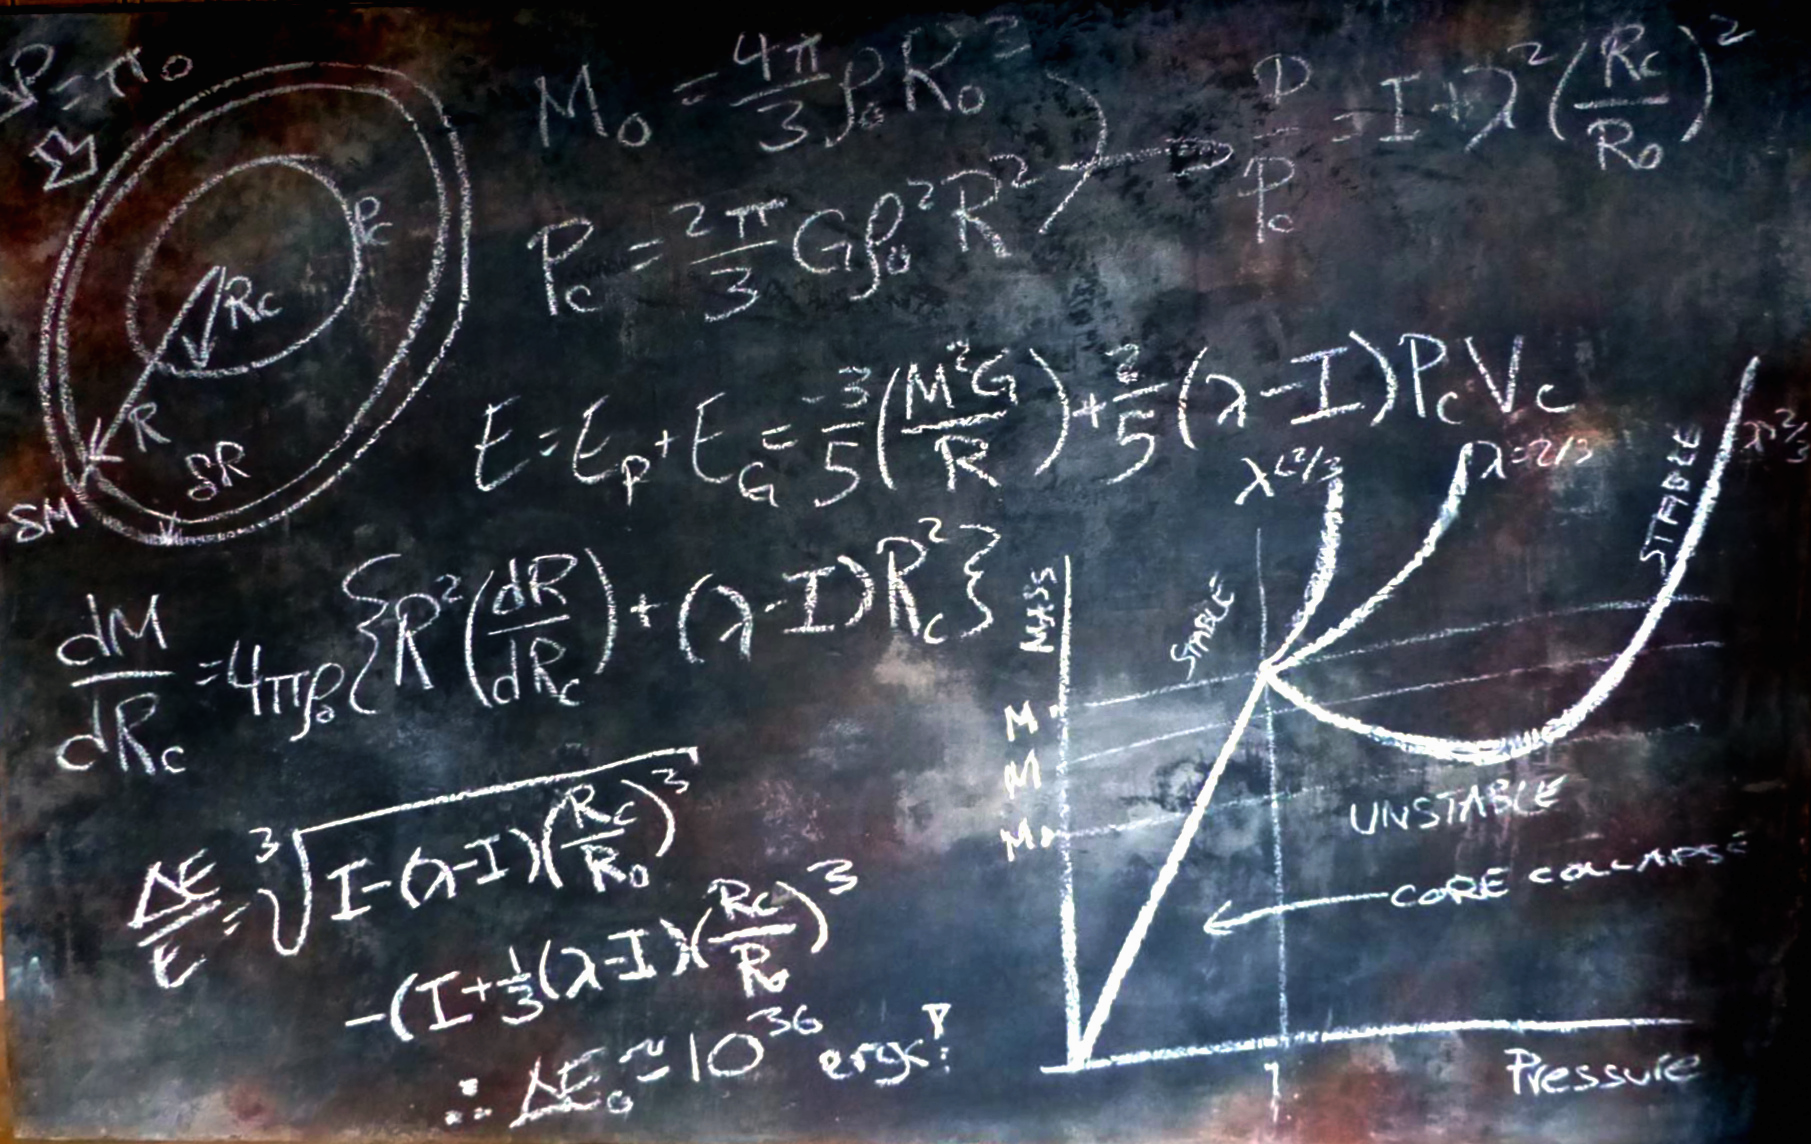 P = π₀
P꜀
R꜀
R
δR
δM
M₀ = 4π/3 ρ₀R₀³
P꜀ = 2π/3 Gρ₀²R²
P/P꜀ = I + λ²(R꜀/R₀)²
E = E_P + E_G = -3/5 (M²G/R) + 2/5 (λ-I)P꜀V꜀
dM/dR꜀ = 4πρ₀{R²(dR/dR꜀) + (λ-I)R꜀²}
ΔE/E = ∛(I-(λ-I)(R꜀/R₀)³
-(I+⅓(λ-I)(R꜀/R₀)³
∴ ΔE₀ ≈ 10³⁶ ergs!
λ<2/3
λ=2/3
λ>2/3
STABLE
STABLE
MASS
M
M
M
UNSTABLE
← CORE COLLAPSE
1
Pressure